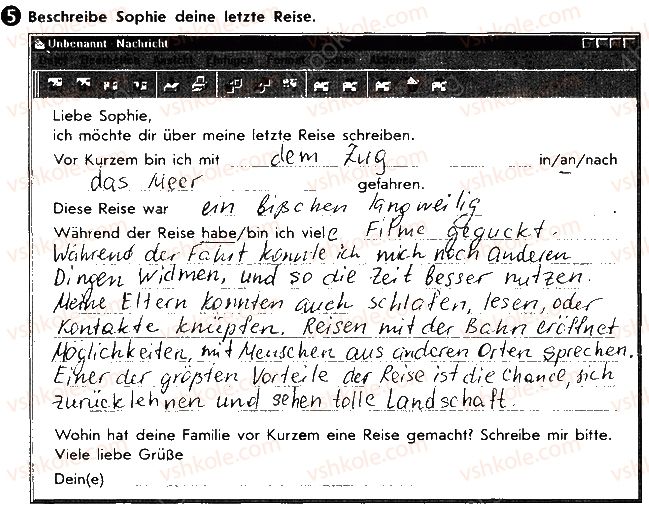 5 Beschreibe Sophie deine letzte Reise.
Unbenannt - Nachricht
Liebe Sophie,
ich möchte dir über meine letzte Reise schreiben.
Vor Kurzem bin ich mit dem Zug in/an/nach
das Meer gefahren.
Diese Reise war ein bißchen langweilig
Während der Reise habe/bin ich viele Filme geguckt.
Während der Fahrt konnte ich mich noch anderen
Dingen widmen, und so die Zeit besser nutzen.
Meine Eltern konnten auch schlafen, lesen, oder
Kontakte knüpfen. Reisen mit der Bahn eröffnet
Möglichkeiten, mit Menschen aus anderen Orten sprechen.
Einer der größten Vorteile der Reise ist die Chance, sich
zurücklehnen und sehen tolle Landschaft.
Wohin hat deine Familie vor Kurzem eine Reise gemacht? Schreibe mir bitte.
Viele liebe Grüße
Dein(e)